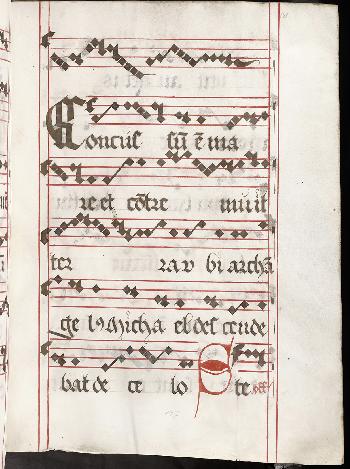 Concus sū ē ma
re et cōtre muit
ter ra v bi archā
ge l9 Micha el des cende
bat de ce lo
te